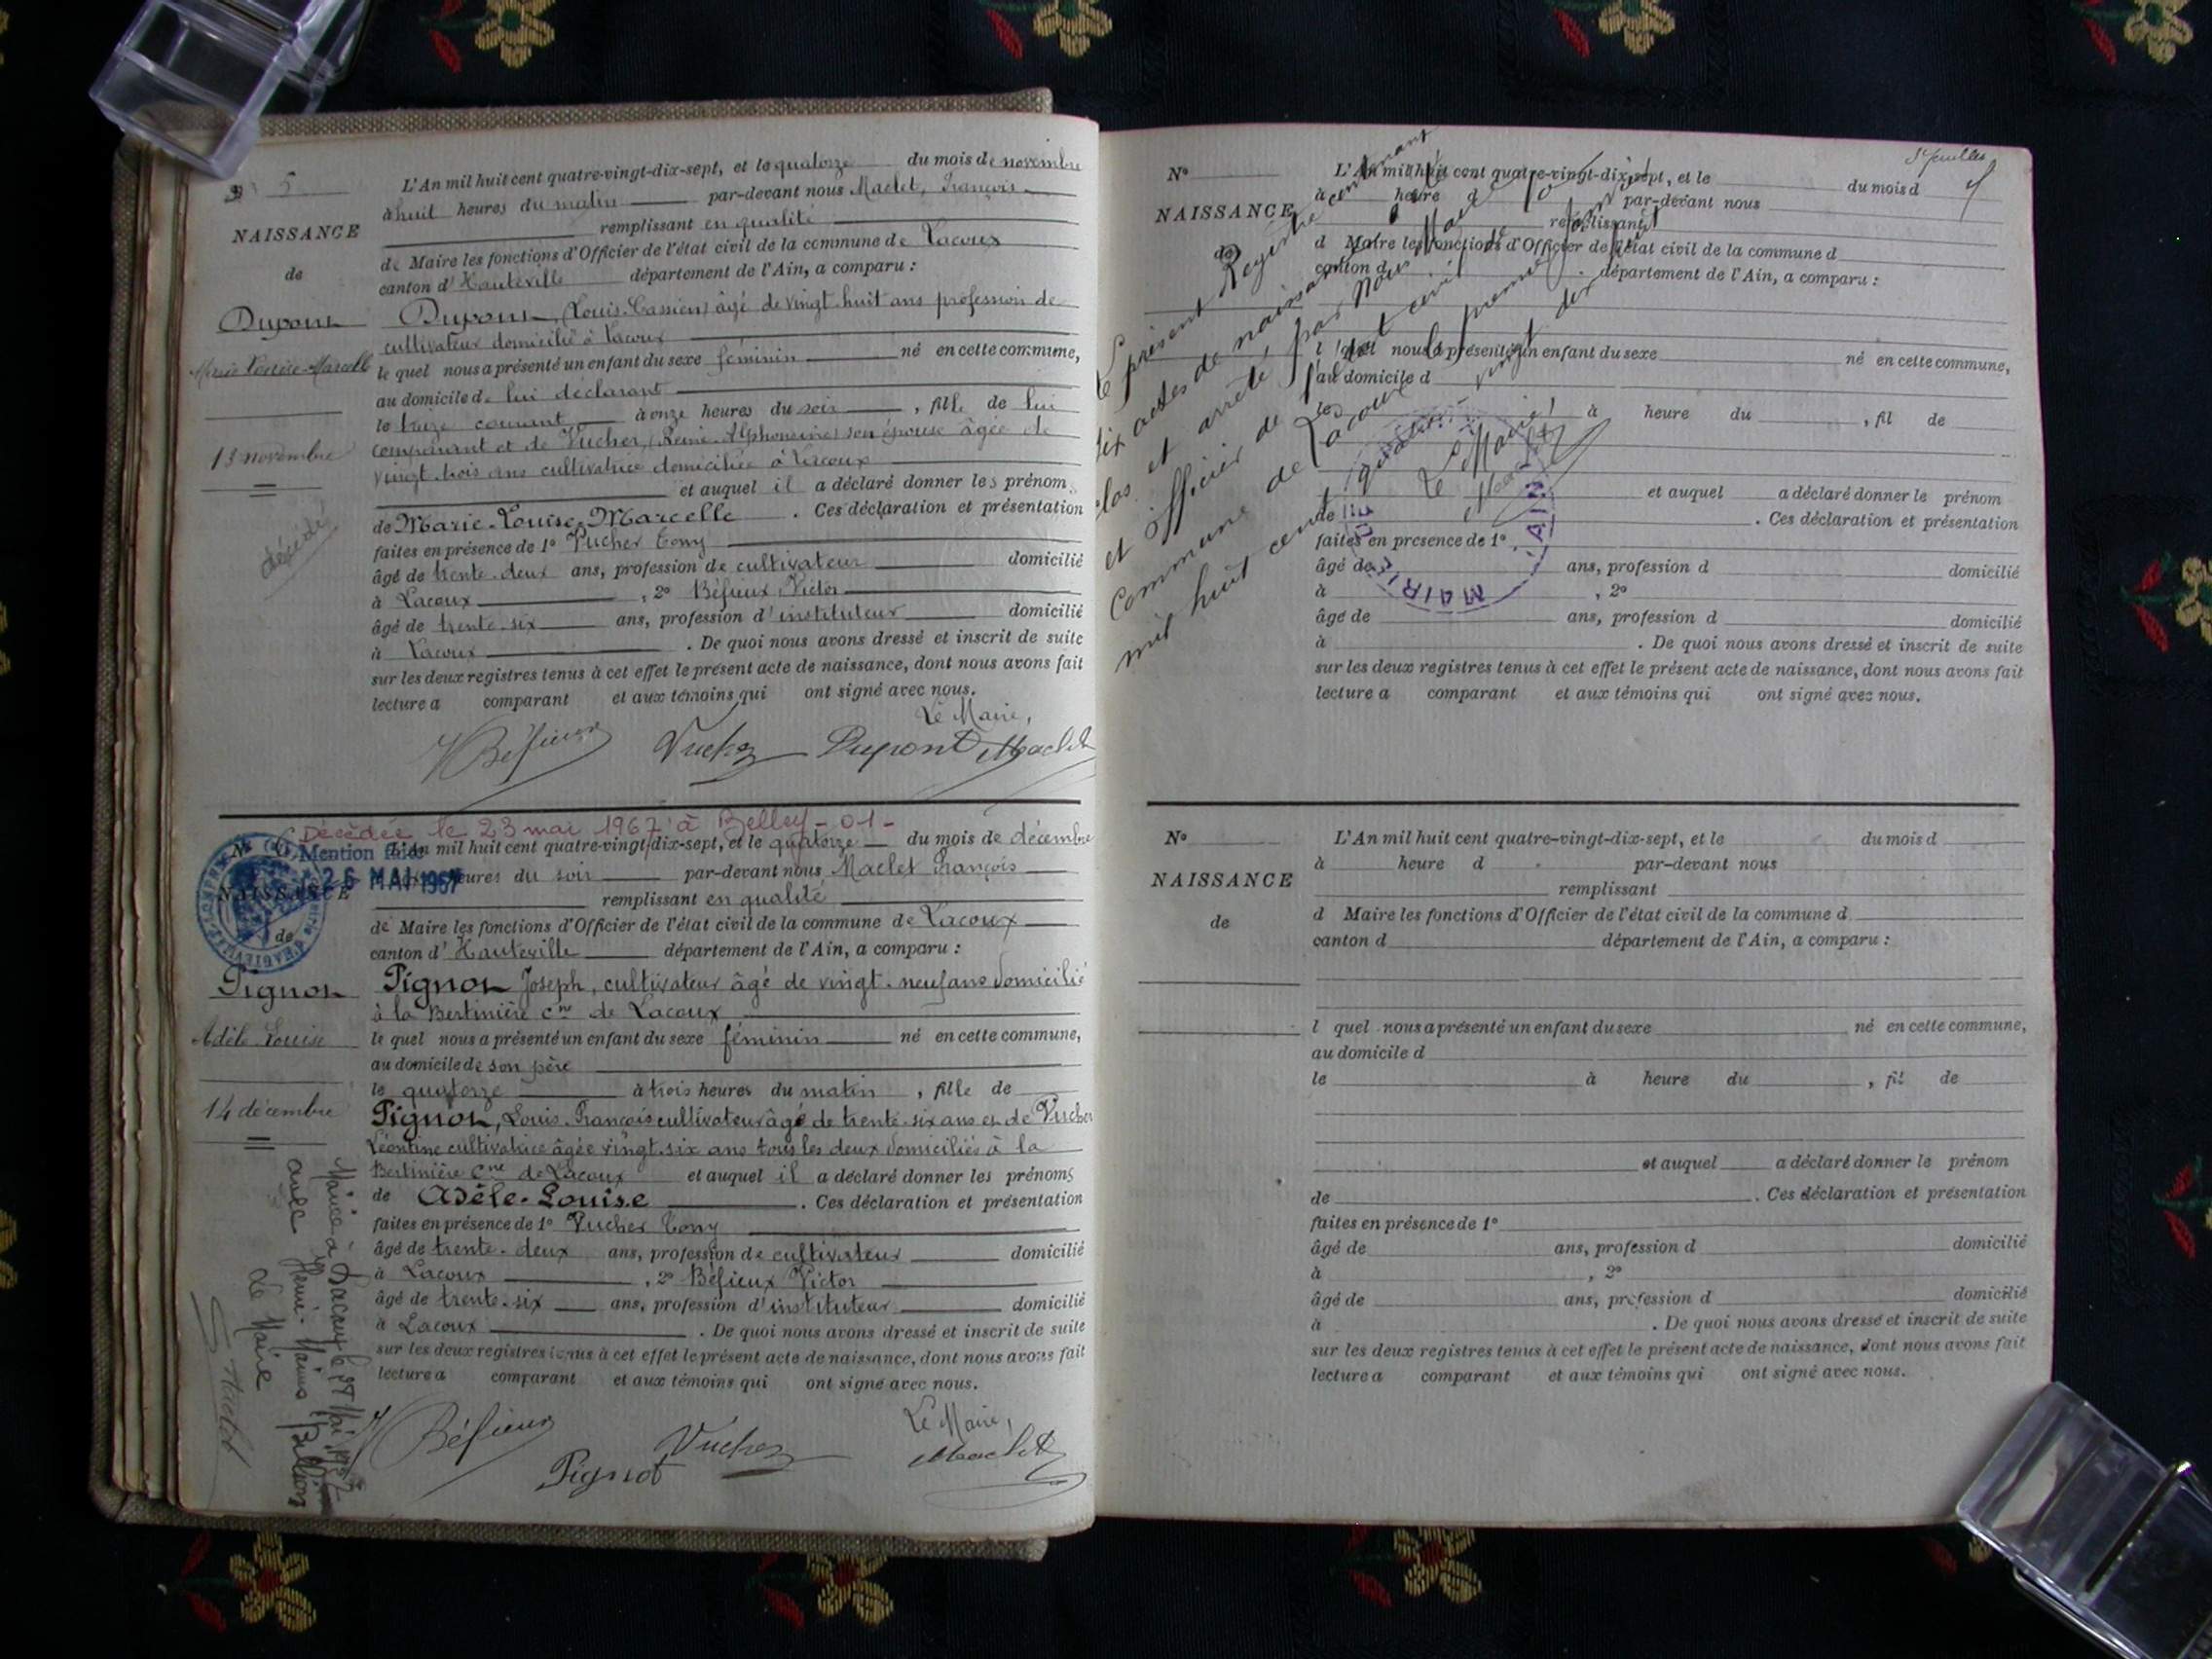 N° 5
NAISSANCE
de
Dupont
Marie-Louise-Marcelle
13 novembre
décédé
L'An mil huit cent quatre-vingt-dix-sept, et le quatorze du mois de novembre
à huit heures du matin par-devant nous Maclet, François
remplissant en qualité
de Maire les fonctions d'Officier de l'état civil de la commune de Lacoux
canton d'Hauteville département de l'Ain, a comparu :
Dupont, (Louis-Cassien) âgé de vingt-huit ans profession de
cultivateur domicilié à Lacoux
le quel nous a présenté un enfant du sexe féminin né en cette commune,
au domicile de lui déclarant
le treize courant à onze heures du soir, fille de lui
comparant et de Vucher, (Reine-Alphonsine) son épouse âgée de
vingt-trois ans cultivatrice domiciliée à Lacoux
et auquel il a déclaré donner les prénoms
de Marie-Louise-Marcelle. Ces déclaration et présentation
faites en présence de 1° Vucher Tony
âgé de trente-deux ans, profession de cultivateur domicilié
à Lacoux, 2° Béfieux, Victor
âgé de trente-six ans, profession d'instituteur domicilié
à Lacoux. De quoi nous avons dressé et inscrit de suite
sur les deux registres tenus à cet effet le présent acte de naissance, dont nous avons fait
lecture a comparant et aux témoins qui ont signé avec nous.
Le Maire,
V Béfieux Vucher Dupont Maclet
Décédée le 23 mai 1967 à Belley - 01 -
Mention faite
26 MAI 1967
N° 6
NAISSANCE
de
Pignot
Adèle-Louise
14 décembre
Mariée à Lacoux le 28 Mai
avec Henri-Marius Billion
Le Maire
Maclet
L'An mil huit cent quatre-vingt-dix-sept, et le quatorze du mois de décembre
heures du soir par-devant nous Maclet François
remplissant en qualité
de Maire les fonctions d'Officier de l'état civil de la commune de Lacoux
canton d'Hauteville département de l'Ain, a comparu :
Pignot Joseph, cultivateur âgé de vingt-neuf ans domicilié
à la Bertinière cne de Lacoux
le quel nous a présenté un enfant du sexe féminin né en cette commune,
au domicile de son père
le quatorze à trois heures du matin, fille de
Pignot, Louis-François cultivateur âgé de trente-six ans et de Vucher
Léontine cultivatrice âgée vingt-six ans tous les deux domiciliés à la
Bertinière Cne de Lacoux et auquel il a déclaré donner les prénoms
de Adèle-Louise. Ces déclaration et présentation
faites en présence de 1° Vucher Tony
âgé de trente-deux ans, profession de cultivateur domicilié
à Lacoux, 2° Béfieux Victor
âgé de trente-six ans, profession d'instituteur domicilié
à Lacoux. De quoi nous avons dressé et inscrit de suite
sur les deux registres tenus à cet effet le présent acte de naissance, dont nous avons fait
lecture a comparant et aux témoins qui ont signé avec nous.
Le Maire,
V Béfieux Pignot Vucher Maclet
N°
NAISSANCE
de
L'An mil huit cent quatre-vingt-dix-sept, et le du mois d
à heure d par-devant nous
remplissant
d Maire les fonctions d'Officier de l'état civil de la commune d
canton d département de l'Ain, a comparu :
l quel nous a présenté un enfant du sexe né en cette commune,
au domicile d
le à heure du, fil de
et auquel a déclaré donner le prénom
de. Ces déclaration et présentation
faites en présence de 1°
âgé de ans, profession d domicilié
à, 2°
âgé de ans, profession d domicilié
à. De quoi nous avons dressé et inscrit de suite
sur les deux registres tenus à cet effet le présent acte de naissance, dont nous avons fait
lecture a comparant et aux témoins qui ont signé avec nous.
Le présent Registre contenant
six actes de naissance a été
clos et arrêté, par Nous Maire
et Officier de l'état civil de la
Commune de Lacoux le premier janvier
mil huit cent quatre-vingt-dix-huit
Le Maire
Maclet
MAIRIE DE AIN
N°
NAISSANCE
de
L'An mil huit cent quatre-vingt-dix-sept, et le du mois d
à heure d par-devant nous
remplissant
d Maire les fonctions d'Officier de l'état civil de la commune d
canton d département de l'Ain, a comparu :
l quel nous a présenté un enfant du sexe né en cette commune,
au domicile d
le à heure du, fil de
et auquel a déclaré donner le prénom
de. Ces déclaration et présentation
faites en présence de 1°
âgé de ans, profession d domicilié
à, 2°
âgé de ans, profession d domicilié
à. De quoi nous avons dressé et inscrit de suite
sur les deux registres tenus à cet effet le présent acte de naissance, dont nous avons fait
lecture a comparant et aux témoins qui ont signé avec nous.